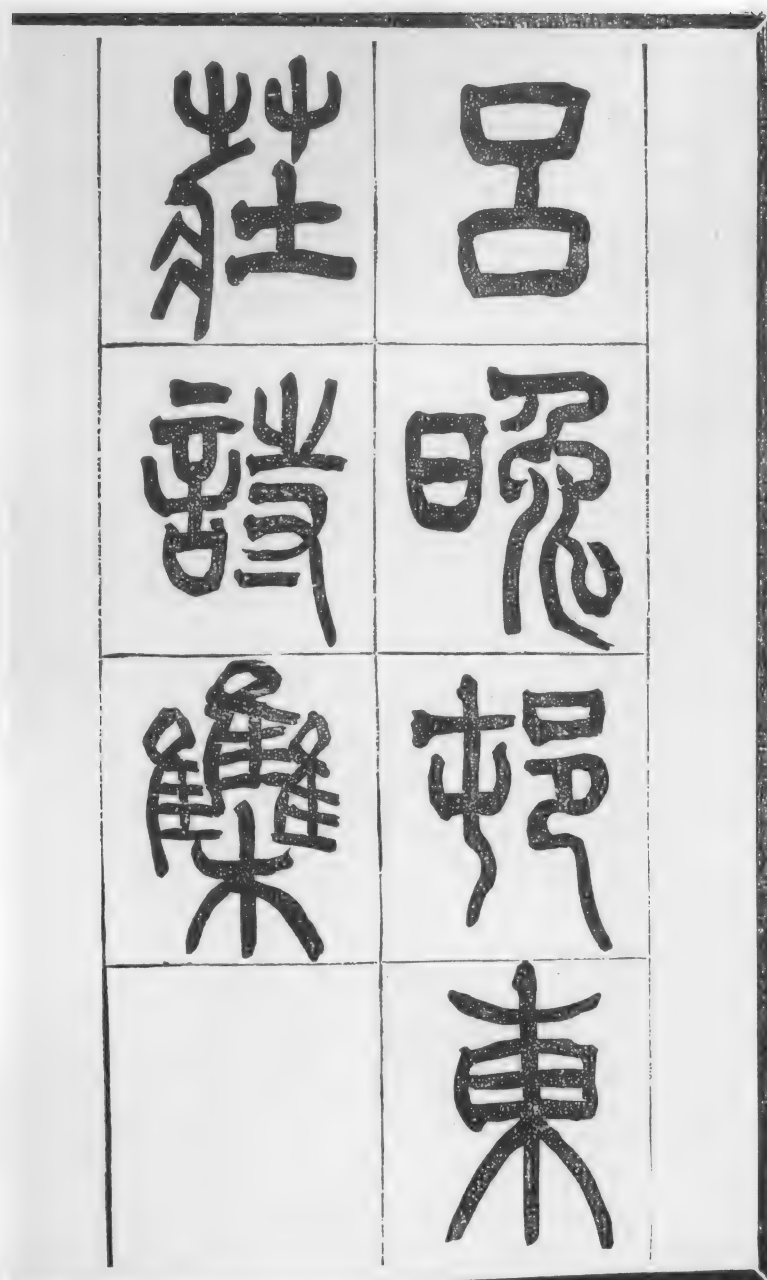 呂晚邨東
莊詩集